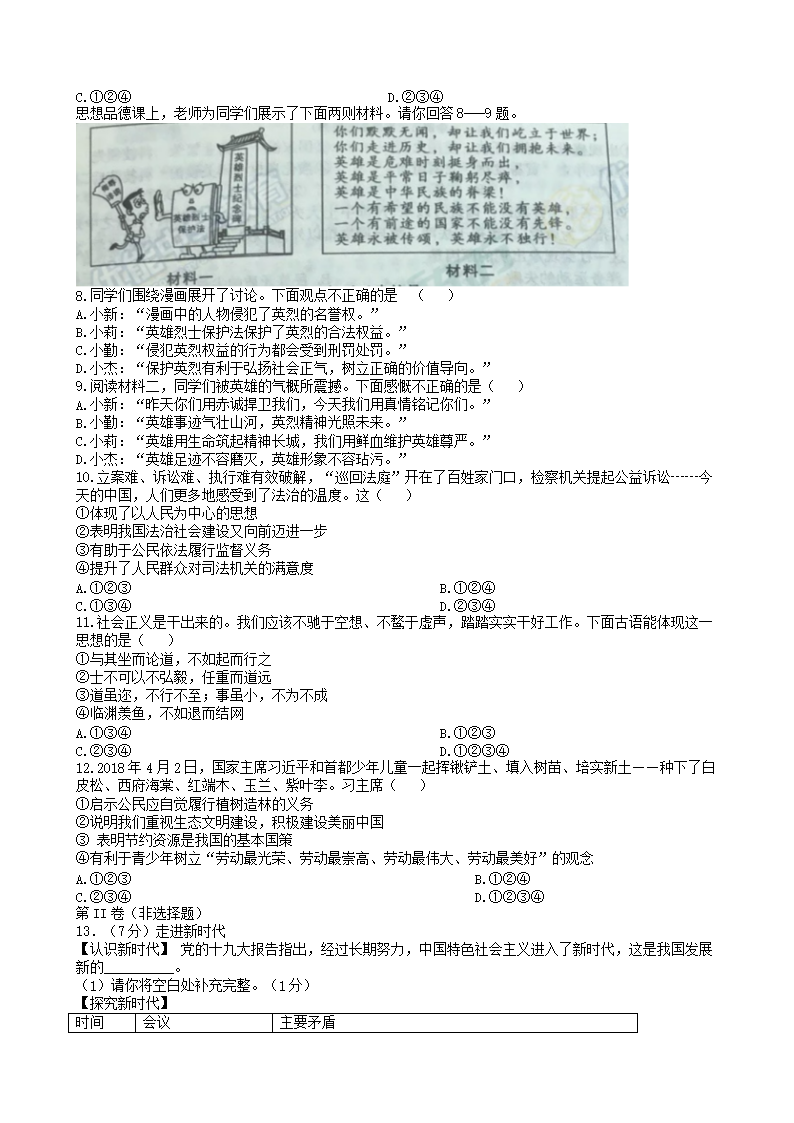 C.①②④ D.②③④
思想品德课上，老师为同学们展示了下面两则材料。请你回答8——9题。
英雄烈士
保护法
英雄烈士纪念碑
材料一
你们默默无闻，却让我们屹立于世界；
你们走进历史，却让我们拥抱未来。
英雄是危难时刻挺身而出，
英雄是平常日子鞠躬尽瘁，
英雄是中华民族的脊梁！
一个有希望的民族不能没有英雄，
一个有前途的国家不能没有先锋。
英雄永被传颂，英雄永不独行！
材料二
8.同学们围绕漫画展开了讨论。下面观点不正确的是 （ ）
A.小新：“漫画中的人物侵犯了英烈的名誉权。”
B.小莉：“英雄烈士保护法保护了英烈的合法权益。”
C.小勤：“侵犯英烈权益的行为都会受到刑罚处罚。”
D.小杰：“保护英烈有利于弘扬社会正气，树立正确的价值导向。”
9.阅读材料二，同学们被英雄的气概所震撼。下面感慨不正确的是（ ）
A.小新：“昨天你们用赤诚捍卫我们，今天我们用真情铭记你们。”
B.小勤：“英雄事迹气壮山河，英烈精神光照未来。”
C.小莉：“英雄用生命筑起精神长城，我们用鲜血维护英雄尊严。”
D.小杰：“英雄足迹不容磨灭，英雄形象不容玷污。”
10.立案难、诉讼难、执行难有效破解，“巡回法庭”开在了百姓家门口，检察机关提起公益诉讼┅┅今
天的中国，人们更多地感受到了法治的温度。这（ ）
①体现了以人民为中心的思想
②表明我国法治社会建设又向前迈进一步
③有助于公民依法履行监督义务
④提升了人民群众对司法机关的满意度
A.①②③ B.①②④
C.①③④ D.②③④
11.社会正义是干出来的。我们应该不驰于空想、不骛于虚声，踏踏实实干好工作。下面古语能体现这一
思想的是（ ）
①与其坐而论道，不如起而行之
②士不可以不弘毅，任重而道远
③道虽迩，不行不至；事虽小，不为不成
④临渊羡鱼，不如退而结网
A.①③④ B.①②③
C.②③④ D.①②③④
12.2018年4月2日，国家主席习近平和首都少年儿童一起挥锹铲土、填入树苗、培实新土——种下了白
皮松、西府海棠、红端木、玉兰、紫叶李。习主席（ ）
①启示公民应自觉履行植树造林的义务
②说明我们重视生态文明建设，积极建设美丽中国
③ 表明节约资源是我国的基本国策
④有利于青少年树立“劳动最光荣、劳动最崇高、劳动最伟大、劳动最美好”的观念
A.①②③ B.①②④
C.②③④ D.①②③④
第II卷（非选择题）
13．（7分）走进新时代
【认识新时代】 党的十九大报告指出，经过长期努力，中国特色社会主义进入了新时代，这是我国发展
新的__________。
（1）请你将空白处补充完整。（1分）
【探究新时代】
时间 会议 主要矛盾